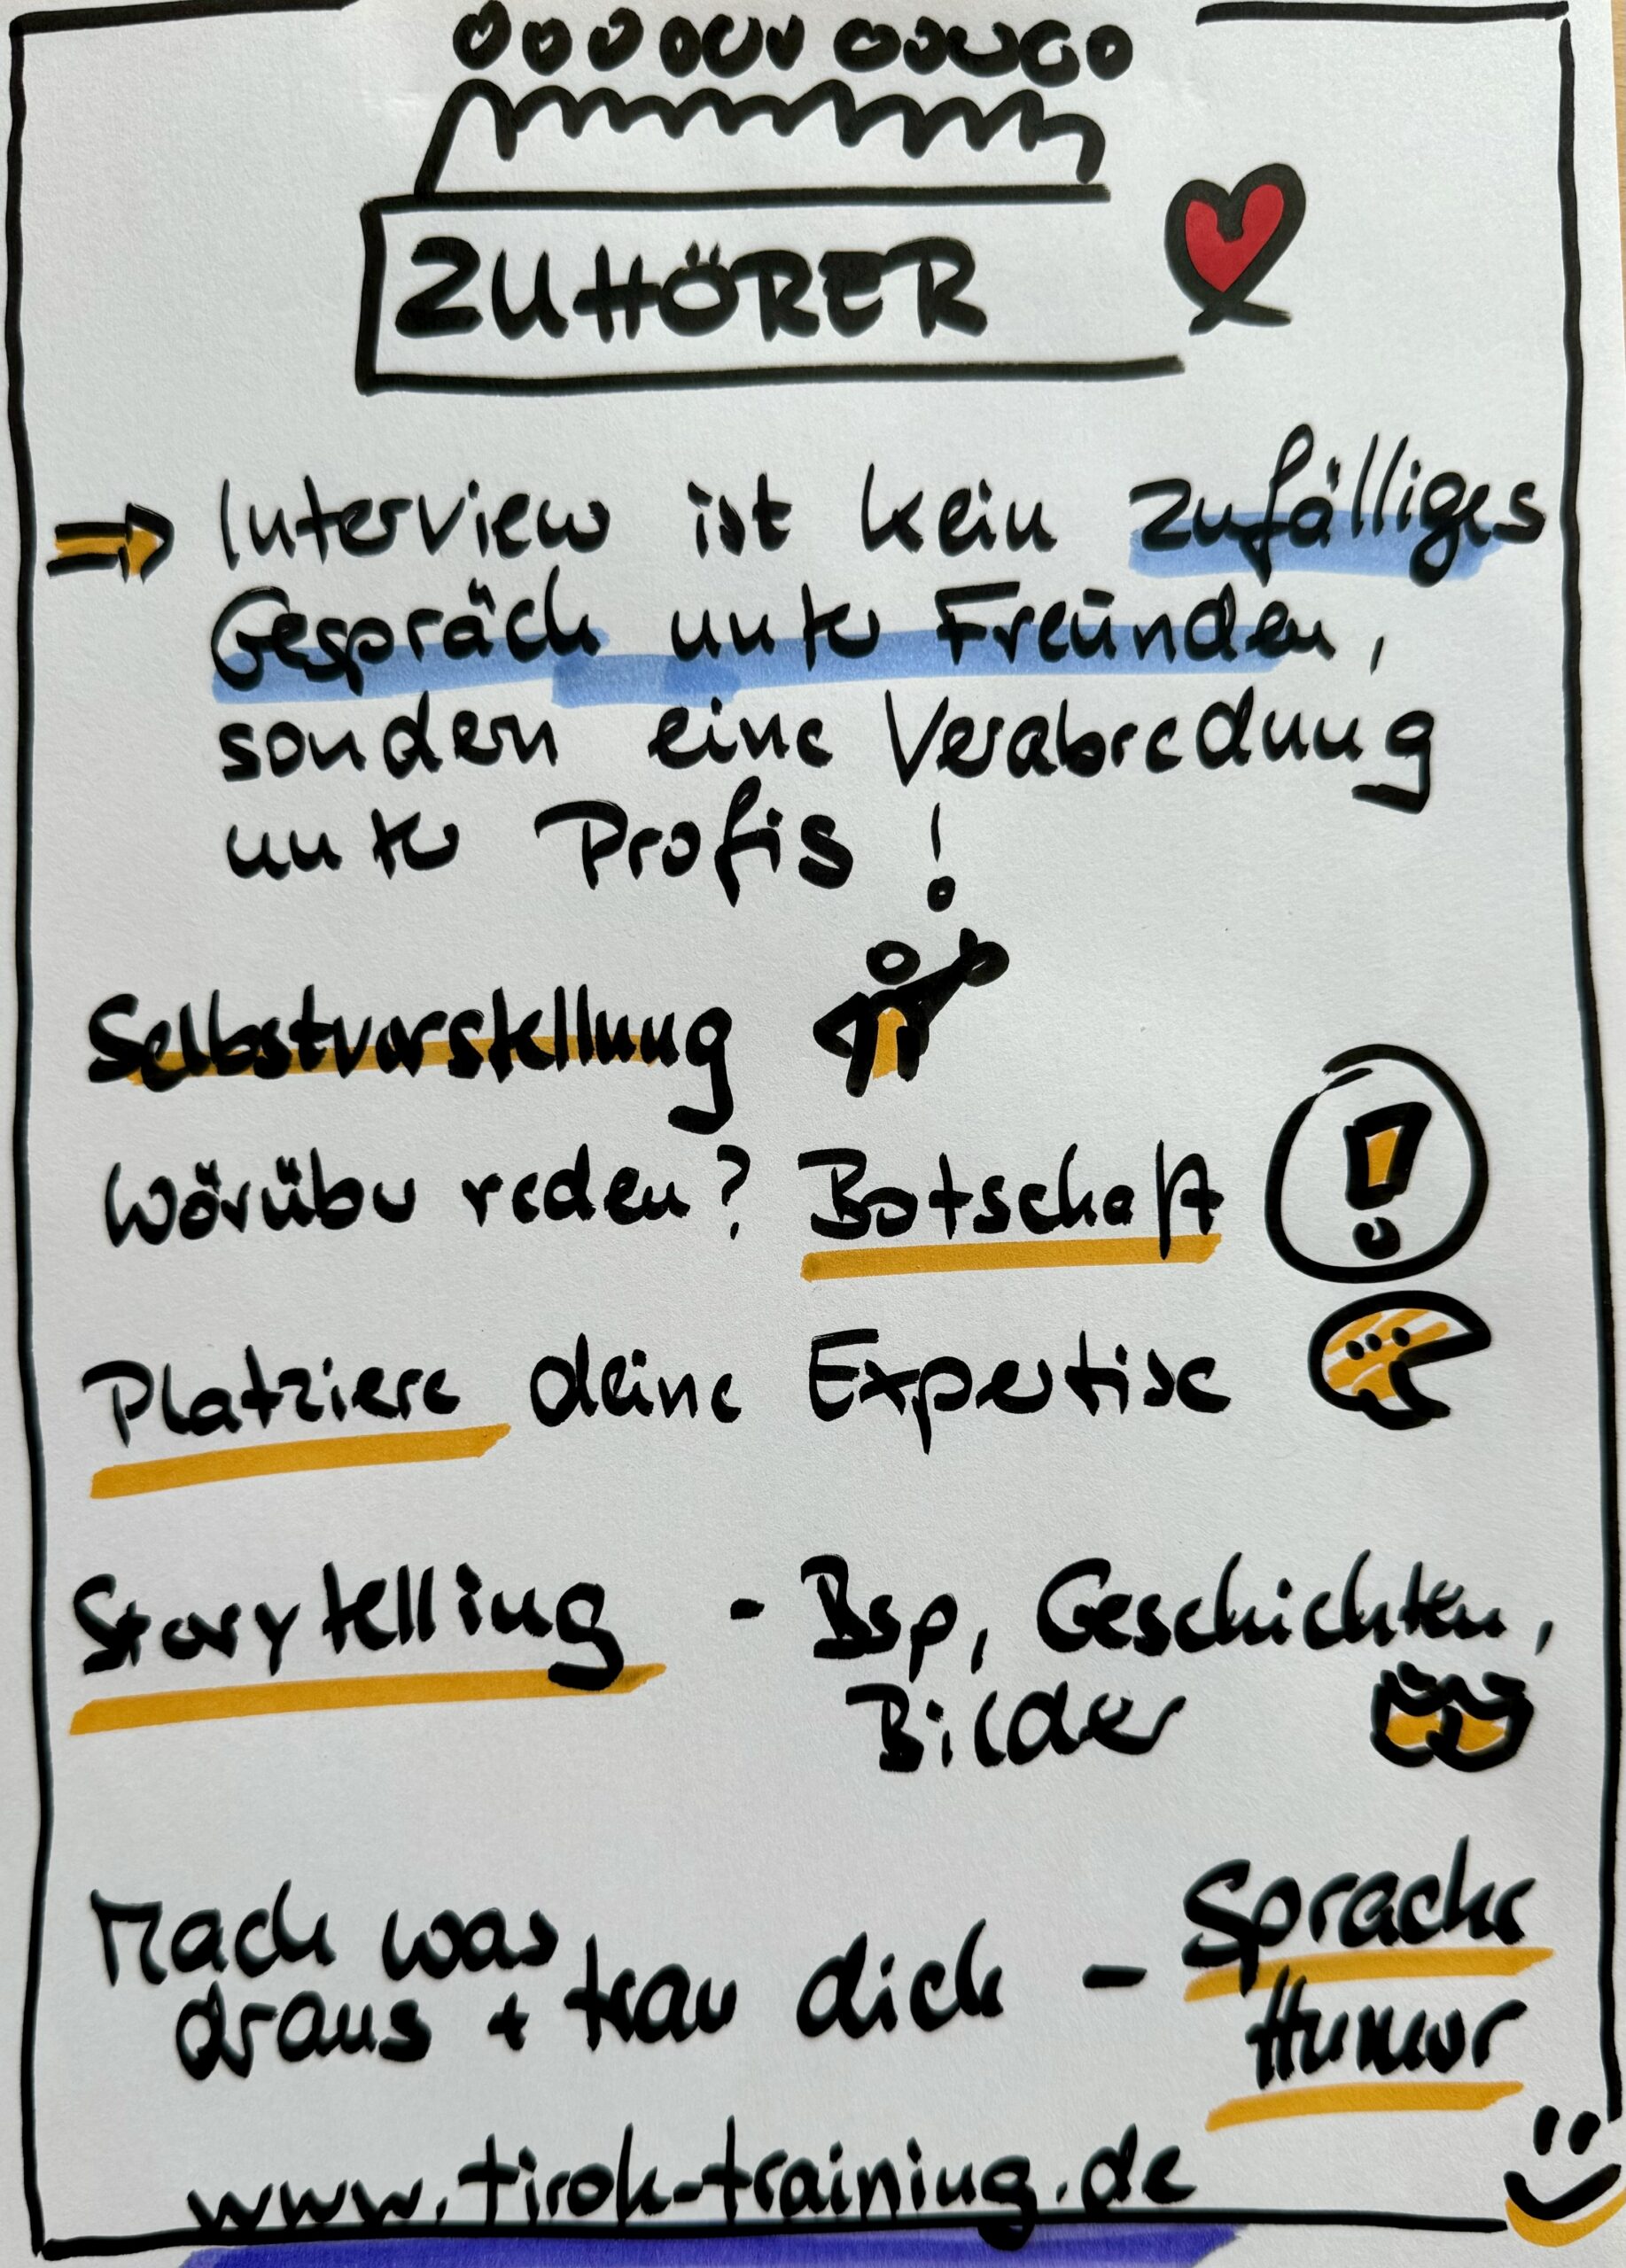 ZUHÖRER
Interview ist kein zufälliges
Gespräch unter Freunden,
sondern eine Verabredung
unter Profis!
Selbstvorstellung
Worüber reden? Botschaft
Platziere deine Expertise
Storytelling - Bsp, Geschichten,
Bilder
Mach was draus + trau dich - Sprache
Humor
www.tirok-training.de